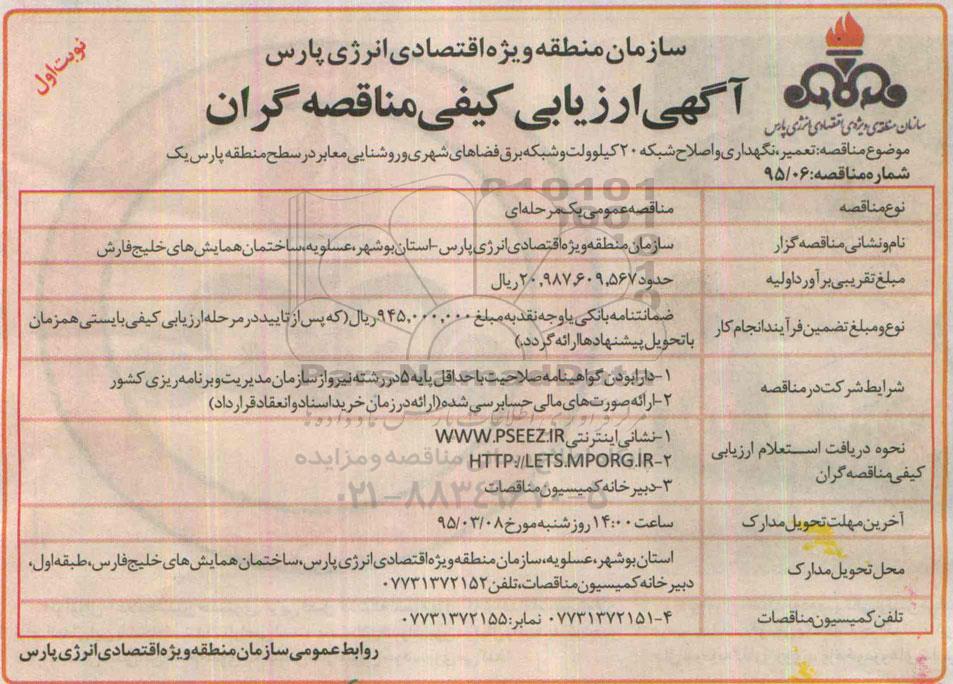 نوبت اول
سازمان منطقه ویژه اقتصادی انرژی پارس
آگهی ارزیابی کیفی مناقصه گران
سازمان منطقه‌ی ویژه‌ی اقتصادی انرژی پارس
موضوع مناقصه: تعمیر، نگهداری و اصلاح شبکه ۲۰ کیلوولت و شبکه برق فضاهای شهری و روشنایی معابر در سطح منطقه پارس یک
شماره مناقصه: ۹۵/۰۶
نوع مناقصه
مناقصه عمومی یک مرحله‌ای
نام و نشانی مناقصه گزار
سازمان منطقه ویژه اقتصادی انرژی پارس - استان بوشهر، عسلویه، ساختمان همایش های خلیج فارش
مبلغ تقریبی برآورد اولیه
حدود ۲۰,۹۸۷,۶۰۹,۵۶۷ ریال
نوع و مبلغ تضمین فرآیند انجام کار
ضمانتنامه بانکی یا وجه نقد به مبلغ ۹۴۵,۰۰۰,۰۰۰ ریال (که پس از تایید در مرحله ارزیابی کیفی بایستی همزمان
با تحویل پیشنهادها ارائه گردد.)
شرایط شرکت در مناقصه
۱- دارا بودن گواهینامه صلاحیت با حداقل پایه ۵ در رشته نیرو از سازمان مدیریت و برنامه ریزی کشور
۲- ارائه صورت های مالی حسابرسی شده (ارائه در زمان خرید اسناد و انعقاد قرارداد)
نحوه دریافت استعلام ارزیابی
کیفی مناقصه گران
۱- نشانی اینترنتی WWW.PSEEZ.IR
۲- HTTP://LETS.MPORG.IR
۳- دبیرخانه کمیسیون مناقصات
آخرین مهلت تحویل مدارک
ساعت ۱۴:۰۰ روز شنبه مورخ ۹۵/۰۳/۰۸
محل تحویل مدارک
استان بوشهر، عسلویه، سازمان منطقه ویژه اقتصادی انرژی پارس، ساختمان همایش های خلیج فارس، طبقه اول،
دبیرخانه کمیسیون مناقصات، تلفن ۰۷۷۳۱۳۷۲۱۵۲
تلفن کمیسیون مناقصات
۰۷۷۳۱۳۷۲۱۵۱-۴ نمابر: ۰۷۷۳۱۳۷۲۱۵۵
روابط عمومی سازمان منطقه ویژه اقتصادی انرژی پارس